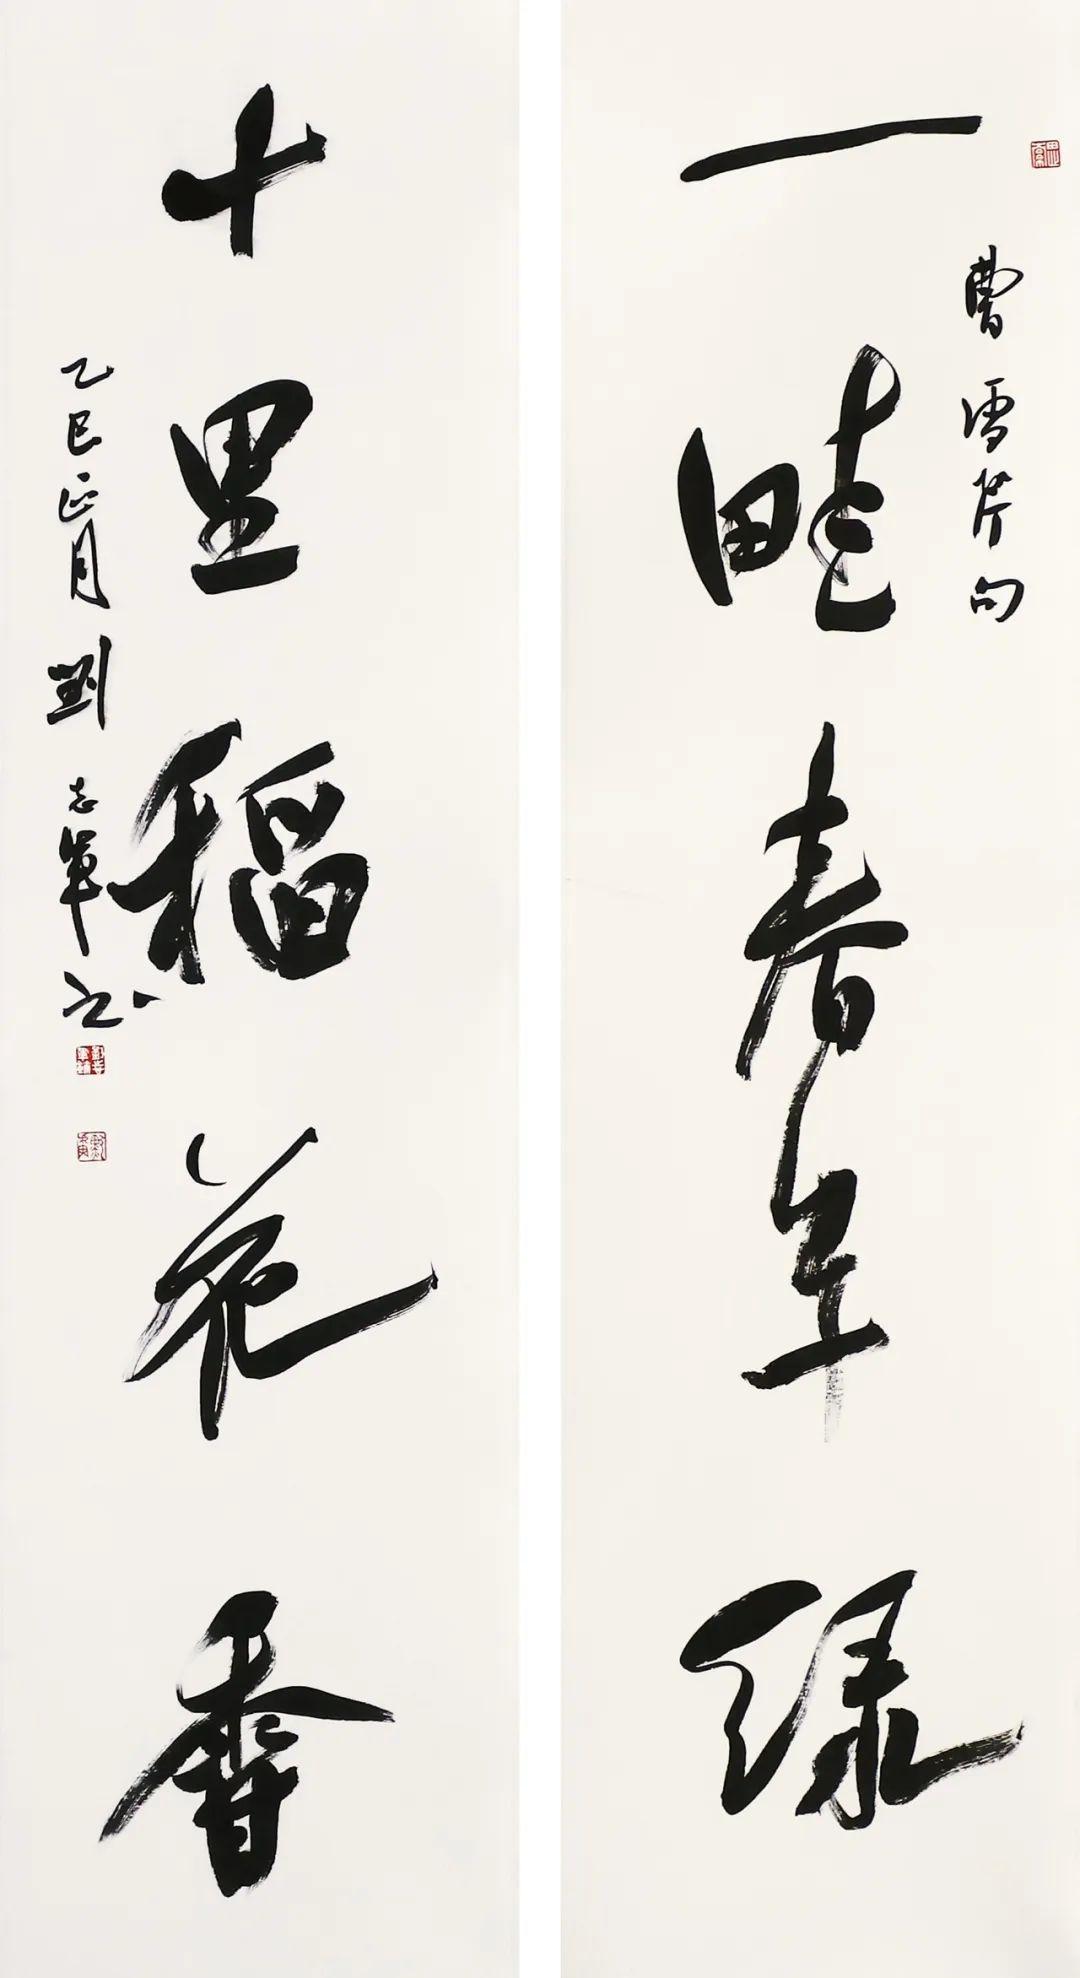 曹雪芹句
一畦春年绿
十里稻花香
乙巳正月劉志軍书